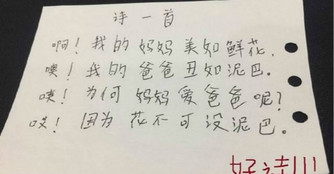 诗一首
啊！我的妈妈美如鲜花.
噢！我的爸爸丑如泥巴.
咦！为何妈妈爱爸爸呢？
哎！因为花不可没泥巴。
好诗!!!